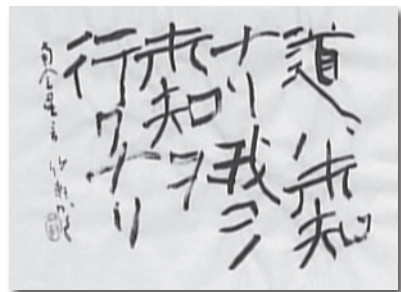 道ハ未知
ナリ我コノ
未知ヲ
行クナリ